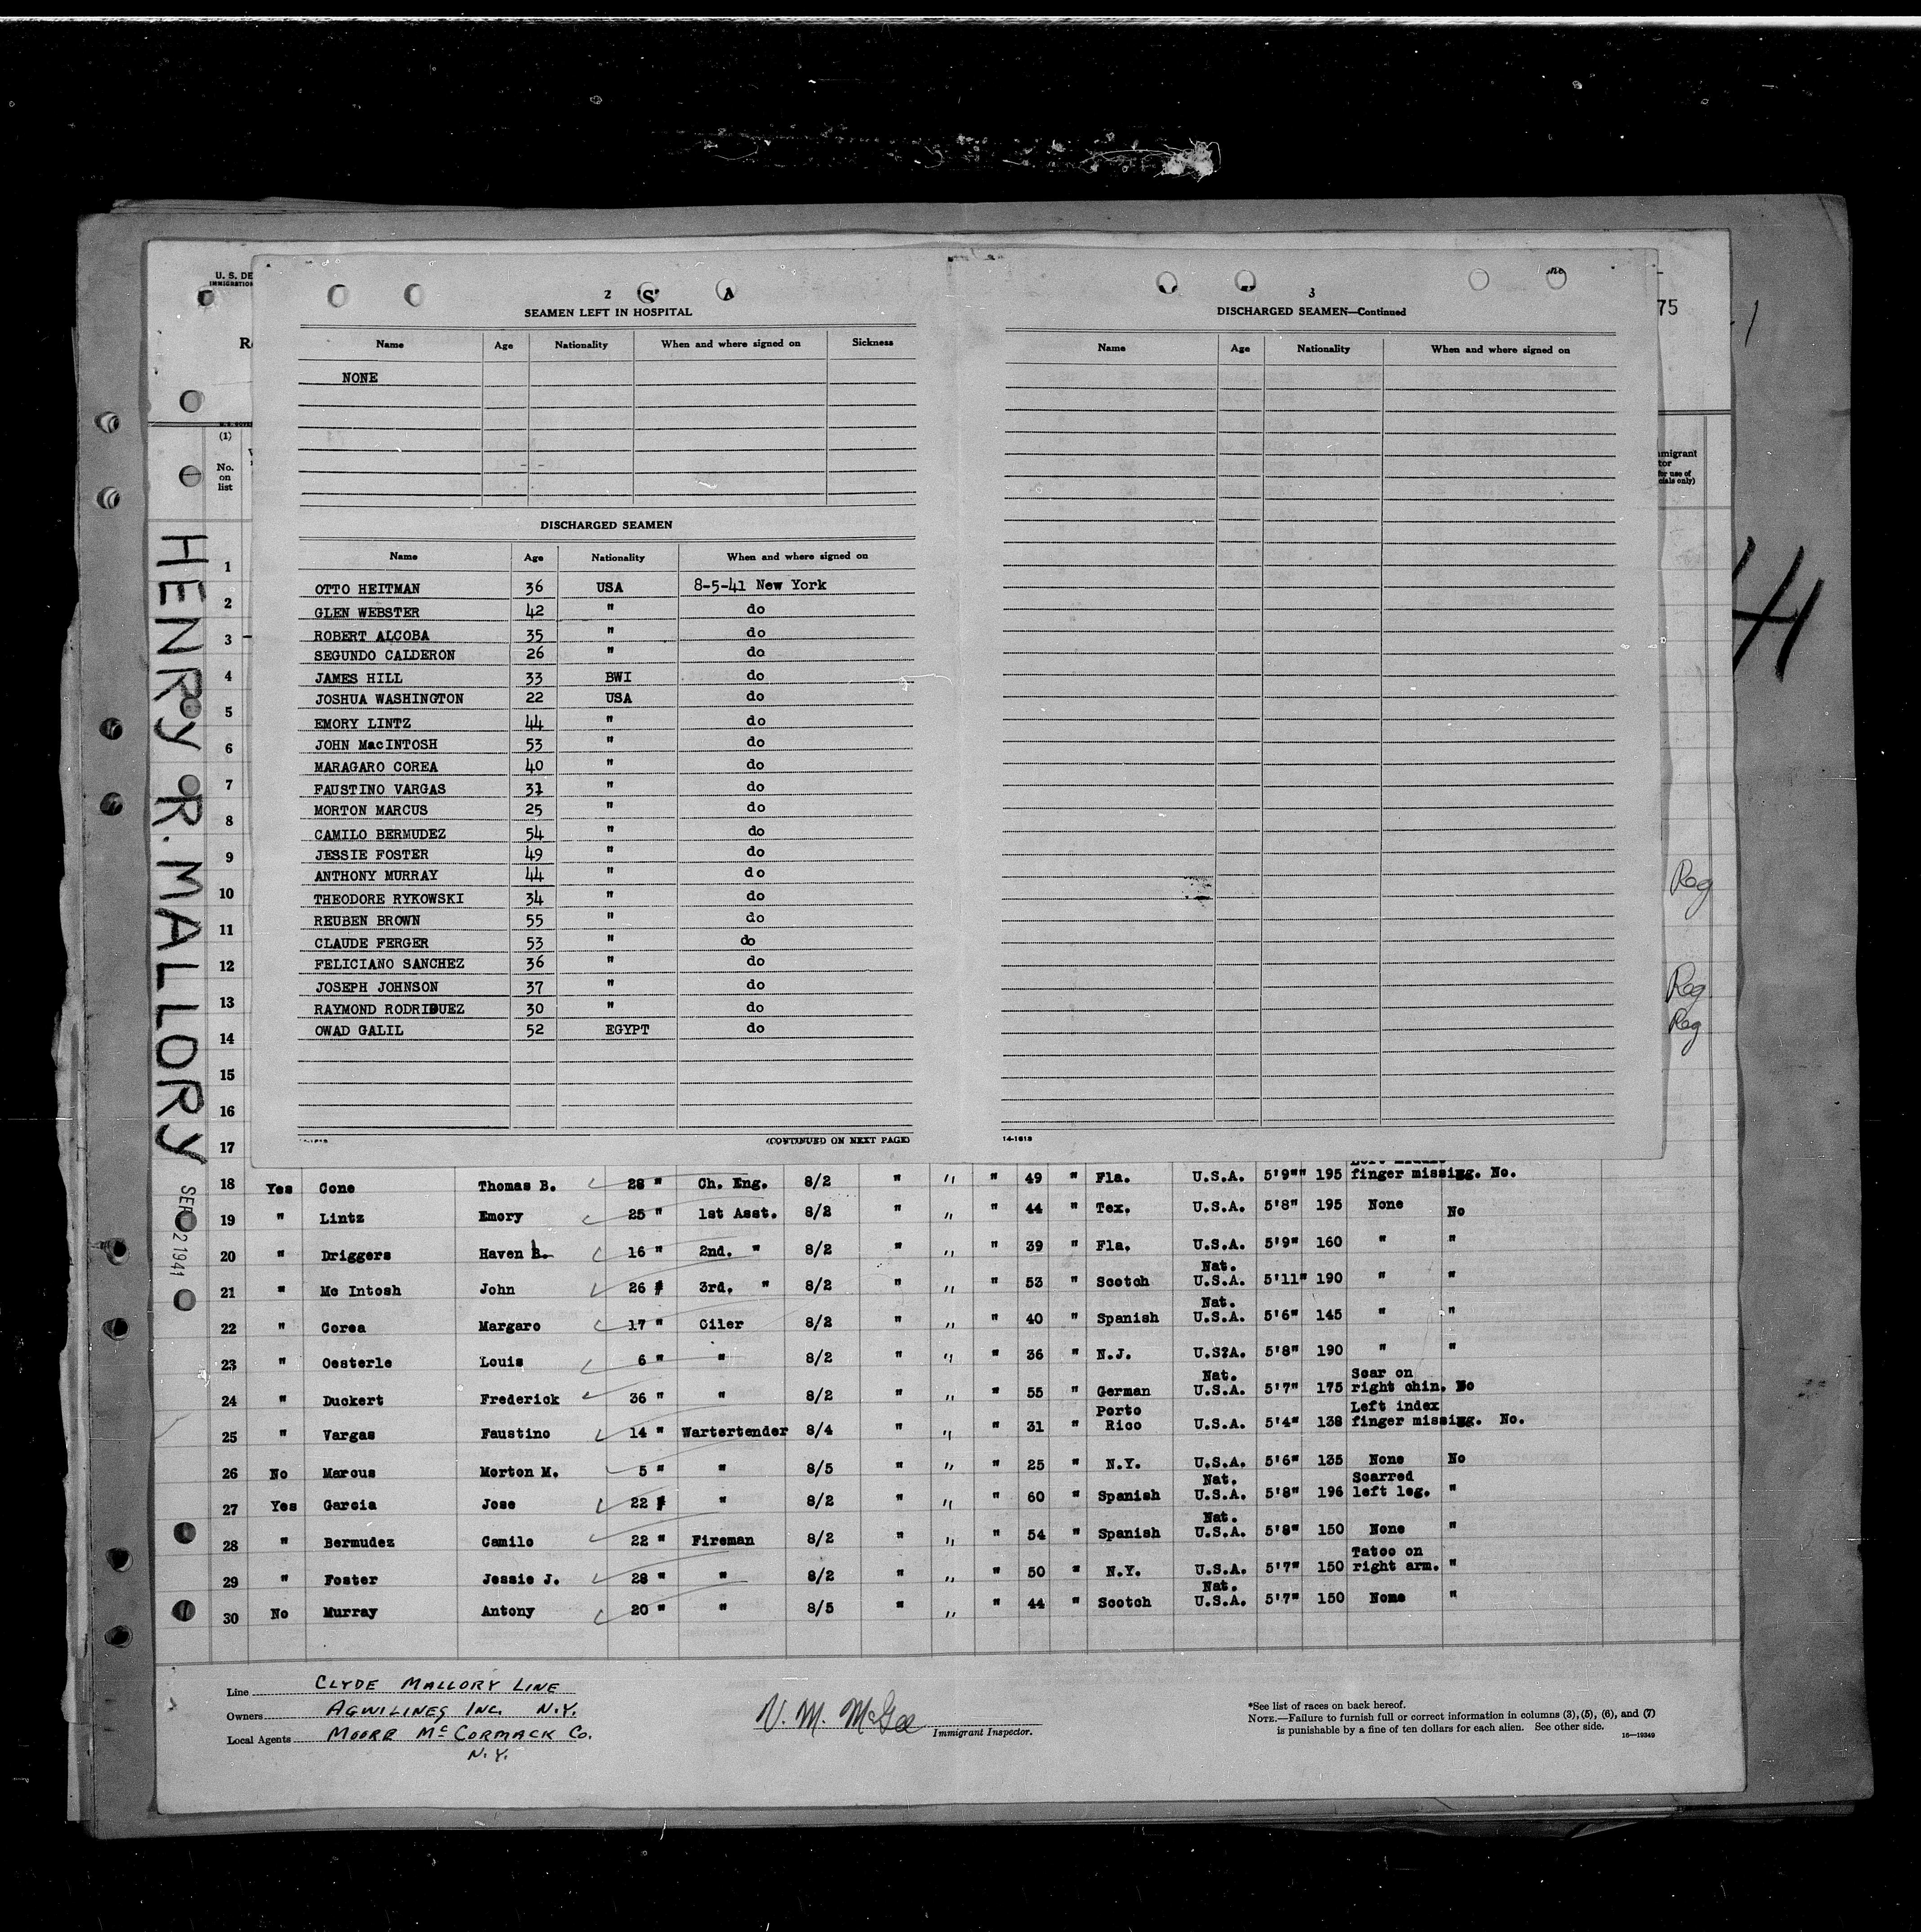 U. S. DE
IMMIGRATION
75
(1)
No.
on
list
HENRY R. MALLORY
SEP 2 1941
2
SEAMEN LEFT IN HOSPITAL
Name Age Nationality When and where signed on Sickness
NONE
DISCHARGED SEAMEN
Name Age Nationality When and where signed on
OTTO HEITMAN 36 USA 8-5-41 New York
GLEN WEBSTER 42 " do
ROBERT ALCOBA 35 " do
SEGUNDO CALDERON 26 " do
JAMES HILL 33 BWI do
JOSHUA WASHINGTON 22 USA do
EMORY LINTZ 44 " do
JOHN MacINTOSH 53 " do
MARAGARO COREA 40 " do
FAUSTINO VARGAS 31 " do
MORTON MARCUS 25 " do
CAMILO BERMUDEZ 54 " do
JESSIE FOSTER 49 " do
ANTHONY MURRAY 44 " do
THEODORE RYKOWSKI 34 " do
REUBEN BROWN 55 " do
CLAUDE FERGER 53 " do
FELICIANO SANCHEZ 36 " do
JOSEPH JOHNSON 37 " do
RAYMOND RODRIGUEZ 30 " do
OWAD GALIL 52 EGYPT do
(CONTINUED ON NEXT PAGE)
3
DISCHARGED SEAMEN—Continued
Name Age Nationality When and where signed on
14-1618
mmigrant
tor
for use of
cials only)
Reg
Reg
Reg
1
2
3
4
5
6
7
8
9
10
11
12
13
14
15
16
17
18 Yes Cone Thomas B. 28 " Ch. Eng. 8/2 " " " 49 " Fla. U.S.A. 5'9"" 195 finger missing. No.
19 " Lintz Emory 25 " 1st Asst. 8/2 " " " 44 " Tex. U.S.A. 5'8" 195 None No
20 " Driggers Haven B. 16 " 2nd. " 8/2 " " " 39 " Fla. U.S.A. 5'9" 160 " "
21 " Mc Intosh John 26 " 3rd. " 8/2 " " " 53 " Scotch Nat. U.S.A. 5'11" 190 " "
22 " Corea Margaro 17 " Oiler 8/2 " " " 40 " Spanish Nat. U.S.A. 5'6" 145 " "
23 " Oesterle Louis 6 " " 8/2 " " " 36 " N.J. U.S?A. 5'8" 190 " "
24 " Duckert Frederick 36 " " 8/2 " " " 55 " German Nat. U.S.A. 5'7" 175 Scar on right chin. No
25 " Vargas Faustino 14 " Wartertender 8/4 " " " 31 " Porto Rico U.S.A. 5'4" 138 Left index finger missing. No.
26 No Marcus Morton M. 5 " " 8/5 " " " 25 " N.Y. U.S.A. 5'6" 135 None No
27 Yes Garcia Jose 22 " " 8/2 " " " 60 " Spanish Nat. U.S.A. 5'8" 196 Scarred left leg. "
28 " Bermudez Camilo 22 " Fireman 8/2 " " " 54 " Spanish Nat. U.S.A. 5'8" 150 None "
29 " Foster Jessie J. 28 " " 8/2 " " " 50 " N.Y. U.S.A. 5'7" 150 Tatoo on right arm. "
30 No Murray Antony 20 " " 8/5 " " " 44 " Scotch Nat. U.S.A. 5'7" 150 None "
Line CLYDE MALLORY LINE
Owners AGWILINES INC. N.Y.
Local Agents MOORE McCORMACK CO.
N.Y.
V. M. McGee
Immigrant Inspector.
*See list of races on back hereof.
NOTE.—Failure to furnish full or correct information in columns (3), (5), (6), and (7)
is punishable by a fine of ten dollars for each alien. See other side.
16—19349